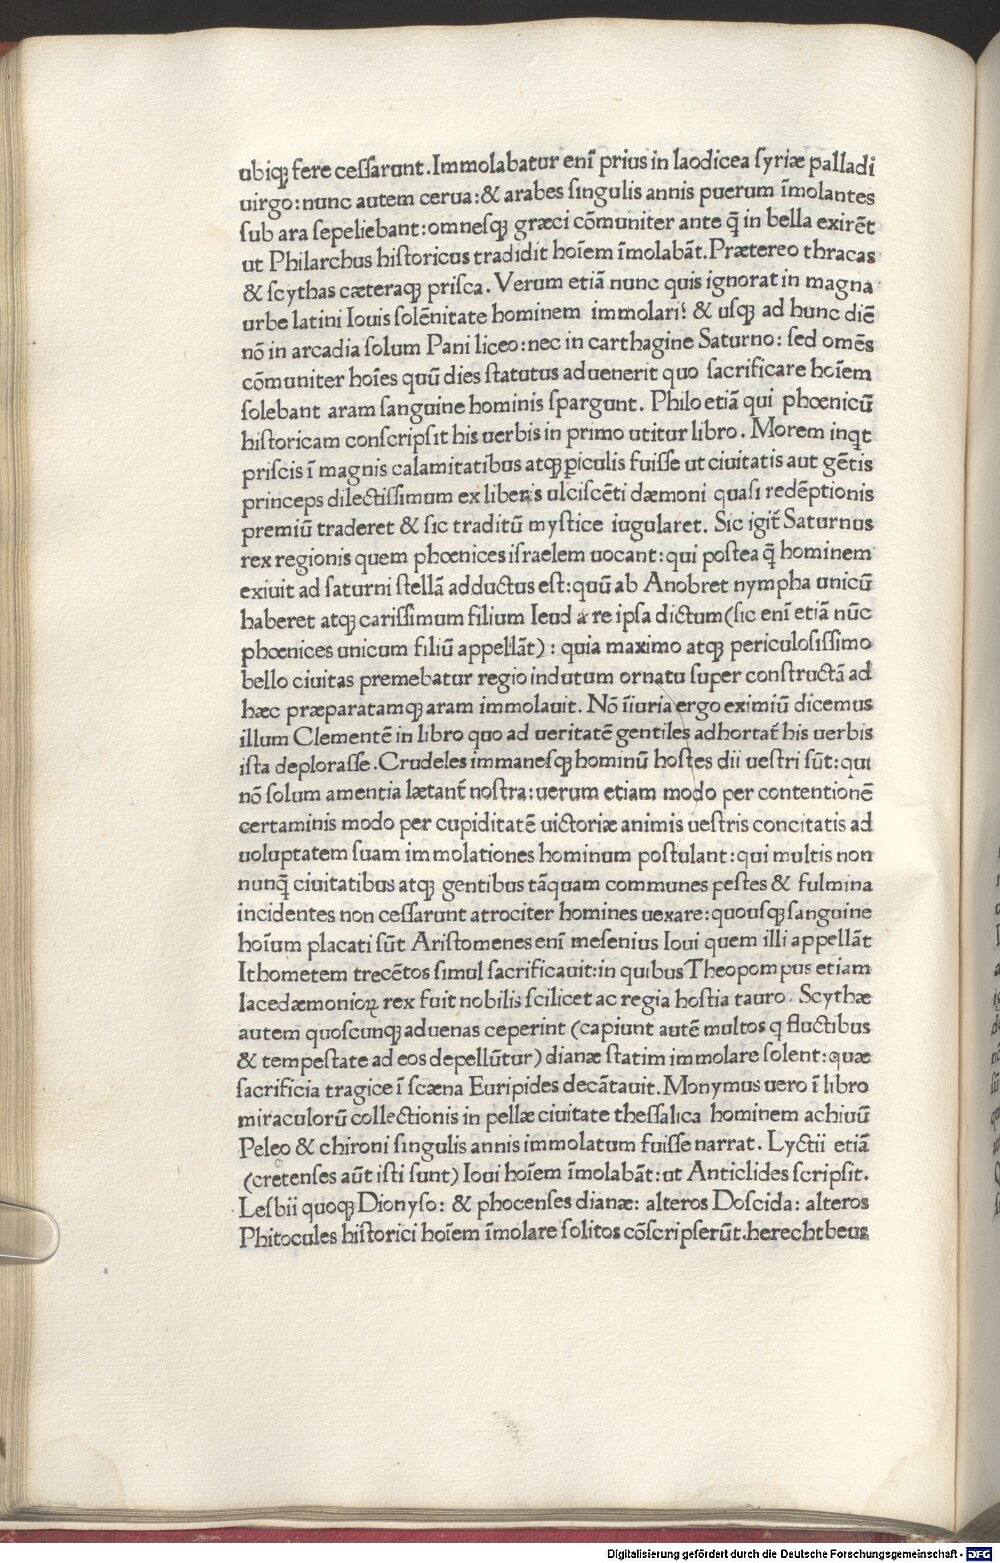 ubiqꝫ fere ceſſarunt. Immolabatur enī prius in laodicea ſyriæ palladi
uirgo: nunc autem cerua: & arabes ſingulis annis puerum īmolantes
ſub ara ſepeliebant: omneſqꝫ græci cōmuniter ante q̄ in bella exirēt
ut Philarchus hiſtoricus tradidit hoīem īmolabāt. Prætereo thracas
& ſcythas cæteraqꝫ priſca. Verum etiā nunc quis ignorat in magna
urbe latini Iouis ſolēnitate hominem immolari? & uſqꝫ ad hunc diē
nō in arcadia ſolum Pani liceo: nec in carthagine Saturno: ſed omēs
cōmuniter hoīes quū dies ſtatutus aduenerit quo ſacrificare hoīem
ſolebant aram ſanguine hominis ſpargunt. Philo etiā qui phœnicū
hiſtoricam conſcripſit his uerbis in primo utitur libro. Morem inqt
priſcis ī magnis calamitatibus atqꝫ ꝑiculis fuiſſe ut ciuitatis aut gētis
princeps dilectiſſimum ex liberis ulciſcēti dæmoni quaſi redēptionis
premiū traderet & ſic traditū myſtice iugularet. Sic igit̄ Saturnus
rex regionis quem phœnices iſraelem uocant: qui poſtea q̄ hominem
exiuit ad ſaturni ſtellā adductus eſt: quū ab Anobret nympha unicū
haberet atqꝫ cariſſimum filium Ieud a re ipſa dictum (ſic enī etiā nūc
phœnices unicum filiū appellāt): quia maximo atqꝫ periculoſiſſimo
bello ciuitas premebatur regio indutum ornatu ſuper conſtructā ad
hæc præparatamqꝫ aram immolauit. Nō īiuria ergo eximiū dicemus
illum Clementē in libro quo ad ueritatē gentiles adhortat̄ his uerbis
iſta deploraſſe. Crudeles immaneſqꝫ hominū hoſtes dii ueſtri ſūt: qui
nō ſolum amentia lætant̄ noſtra: uerum etiam modo per contentionē
certaminis modo per cupiditatē uictoriæ animis ueſtris concitatis ad
uoluptatem ſuam immolationes hominum poſtulant: qui multis non
nunq̄ ciuitatibus atqꝫ gentibus tāquam communes peſtes & fulmina
incidentes non ceſſarunt atrociter homines uexare: quouſqꝫ ſanguine
hoīum placati ſūt Ariſtomenes enī meſenius Ioui quem illi appellāt
Ithometem trecētos ſimul ſacrificauit: in quibus Theopompus etiam
lacedæmonioꝝ rex fuit nobilis ſcilicet ac regia hoſtia tauro. Scythæ
autem quoſcunqꝫ aduenas ceperint (capiunt autē multos q fluctibus
& tempeſtate ad eos depellūtur) dianæ ſtatim immolare ſolent: quæ
ſacrificia tragice ī ſcæna Euripides decātauit. Monymus uero ī libro
miraculorū collectionis in pellæ ciuitate theſſalica hominem achiuū
Peleo & chironi ſingulis annis immolatum fuiſſe narrat. Lyctii etiā
(cretenſes aūt iſti ſunt) Ioui hoīem īmolabāt: ut Anticlides ſcripſit.
Leſbii quoqꝫ Dionyſo: & phocenſes dianæ: alteros Doſcida: alteros
Phitocules hiſtorici hoīem īmolare ſolitos cōſcripſerūt. herechtbeus
Digitalisierung gefördert durch die Deutsche Forschungsgemeinschaft - DFG